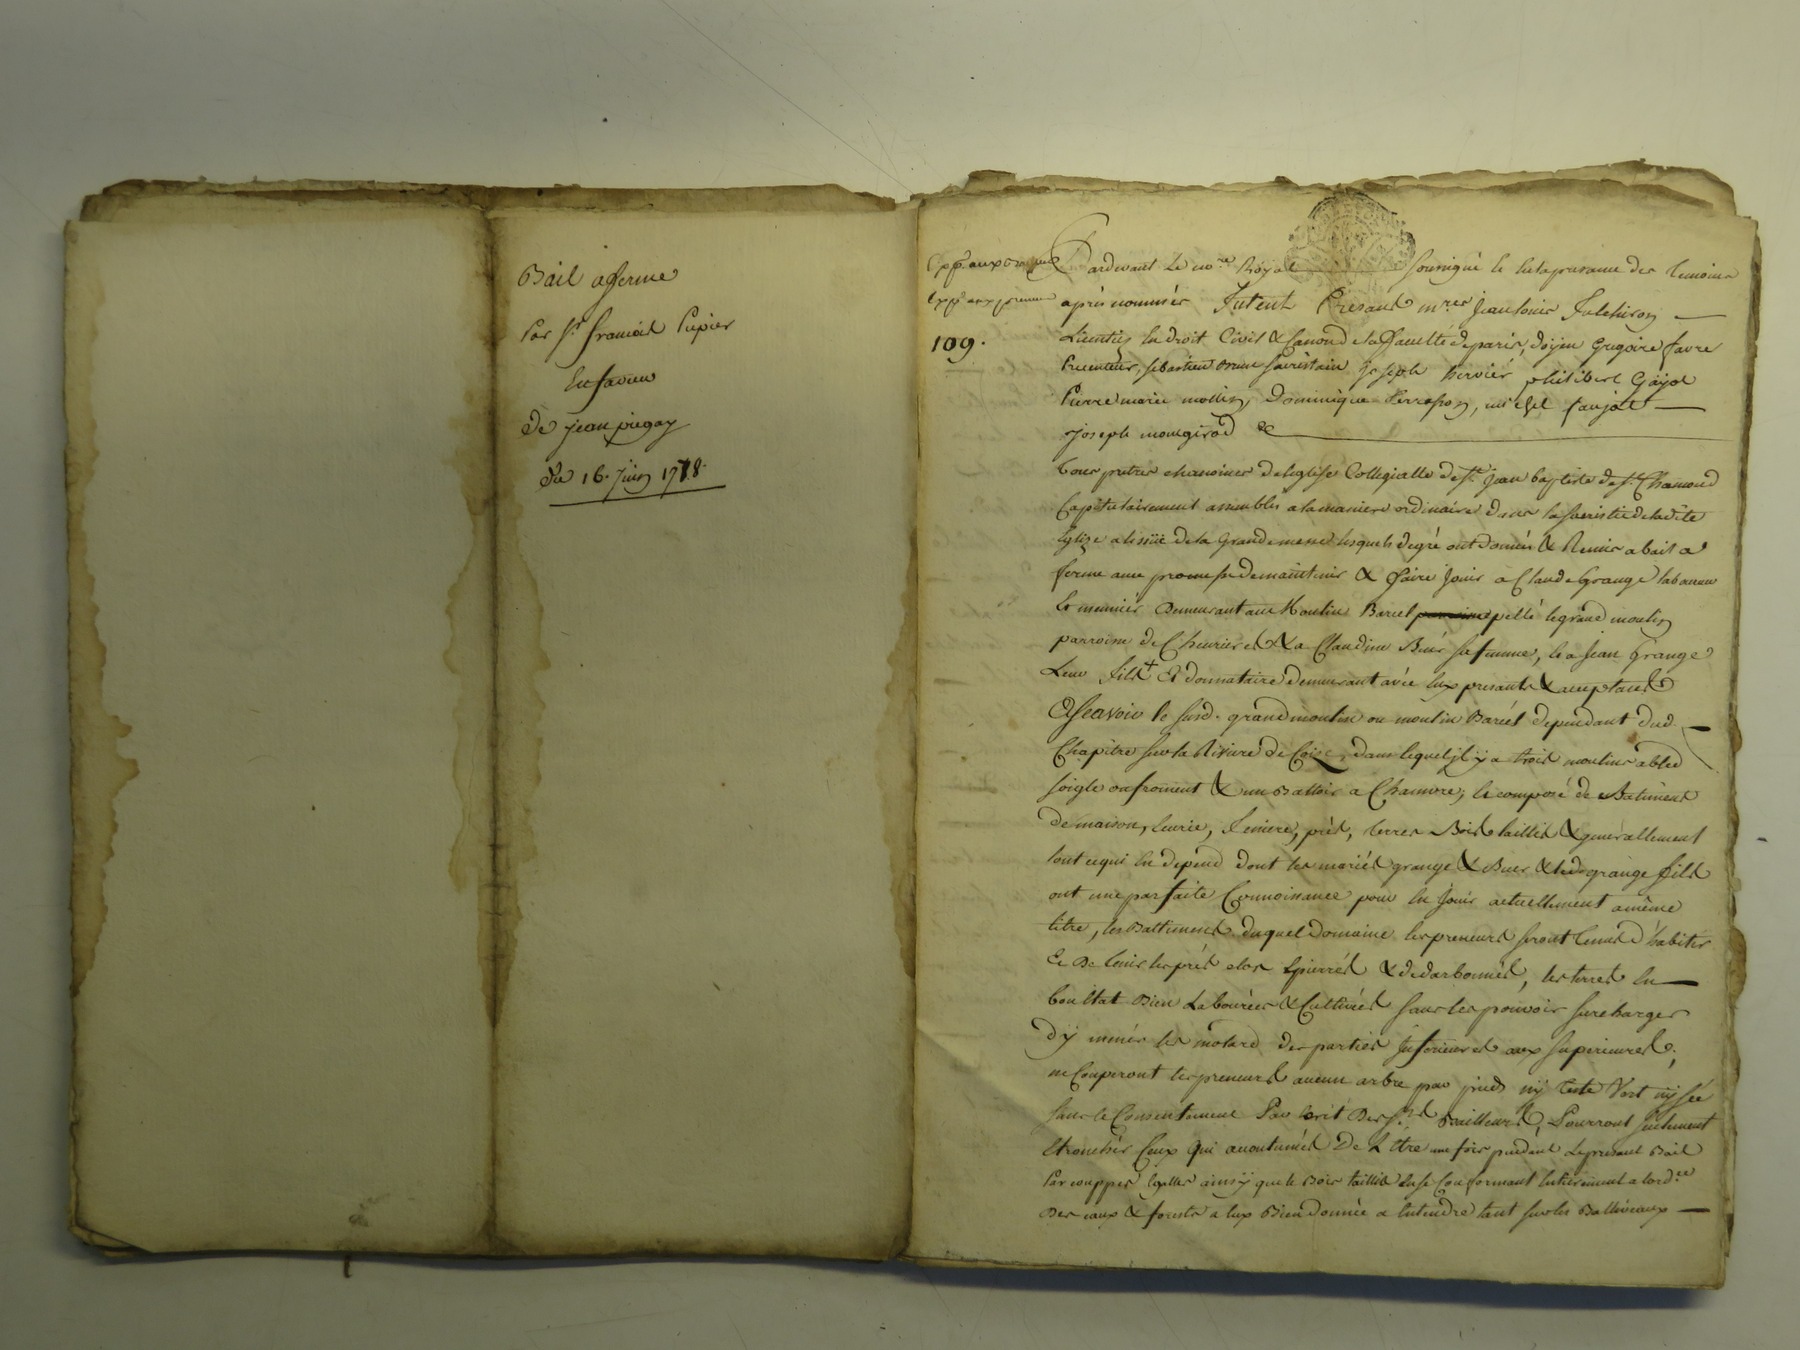 Bail a ferme
Par Sr. francois Pupier
En faveur
de jean piegay
du 16. Juin 1778.
Expp. aux
Expp. aux preneurs
109.
Pardevant Le nore. Royal soussigné & En la presance des temoins
après nommés furent Présants mres. jean louis Fulchiron
Licentiés En droit Civil & Canond de la faculté de paris, doÿen Gregoire favre
Precenteur, sebastien brun sacristain joseph hervier philibert Gayot
Pierre marie mollin, Dominique Terrasson, michel faujat
joseph mongirod
tous pretres chanoines de leglise Collegialle de St. jean baptiste de St. Chamond
Capitulairement assemblés a la maniere ordinaire dans la sacristie de ladite
Eglize a lissüe de la Grande messe lesquels de gré ont donné & Remis a bail a
ferme avec promesse de maintenir & faire jouir a Claude Grange laboureur
& meunier Demeurant au Moulin Bariel pellé le grand moulin
parroisse de Chevrieres & a Claudine Buer sa femme, & a Jean Grange
Leur fils + & donnataire demeurant avec Eux presants & acceptants
Asçavoir le susd. grand moulin ou moulin Bariel dependant dud.
Chapitre sur la Riviere de Coize, dans lequel jl ÿ a trois moulins a bled
soigle ou froment & un Battoir a Chanvre; & composé de Batiments
de maison, Ecurie, feniere, prés, terres Bois taillis & generallement
tout ce qui En depend dont les mariés grange & Buer & led. grange fils
ont une parfaite Connoissance pour En Jouir actuellement a même
titre, les Battiments duquel Domaine les preneurs seront tenus d'habiter
& De tenir les prés clos Epierrés & dedarbonnés, les terres En
bon Etat Bien Labourées & Cultivées sans les pouvoir surcharger
d'ÿ mener les molard des parties Inferieures aux superieures;
ne Couperont les preneurs aucun arbre par pieds nÿ teste Vert nÿ séc
sans le Consentement Par Ecrit Des Srs. Bailleurs, Pourront seulement
Etroncher Ceux qui accoutumés De L'etre une fois pendant Le present Bail
Par couppes Egalles ainsÿ que le Bois taillis En se Conformant Entierement a lordce.
Des eaux & forests a Eux Bien donnée a Entendre tant sur les Balliveaux